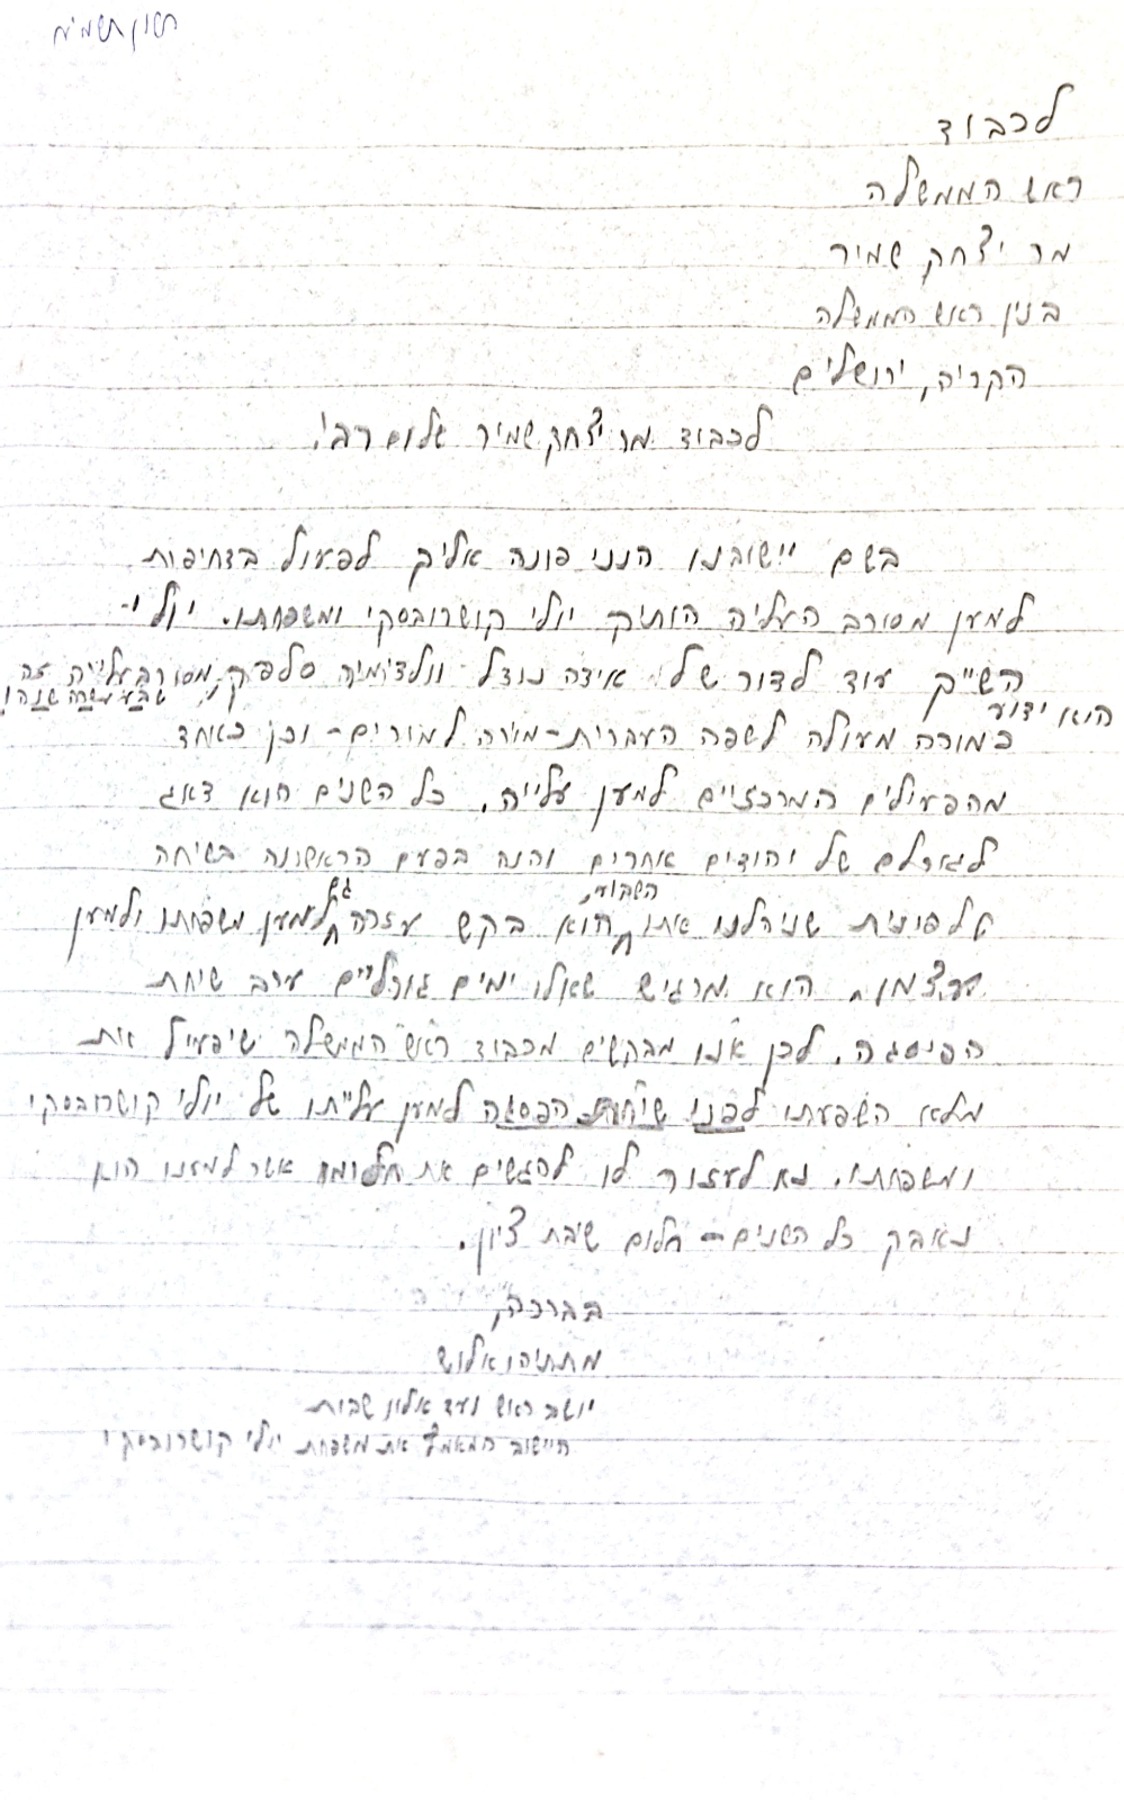 חשון תשמ"ח
לכבוד
ראש הממשלה
מר יצחק שמיר
בנין ראש הממשלה
הקריה, ירושלים
לכבוד מר יצחק שמיר שלום רב!
בשם יישובנו הנני פונה אליך לפעול בדחיפות
למען מסורב העליה הותיק יולי קושרובסקי ומשפחתו. יולי -
השייך עוד לדור של אידה נודל וולדימיר סלפק, מסורב עלייה זה
שבע עשרה שנה!
הוא ידוע
כמורה מעולה לשפה העברית - מורה למורים - וכן כאחד
מהפעילים המרכזיים למען עלייה. כל השנים הוא דאג
לגורלם של יהודים אחרים והנה בפעם הראשונה בשיחה
טלפונית שניהלנו אתו השבוע, הוא בקש עזרה גם למען משפחתו ולמען
עצמו. הוא מרגיש שאלו ימים גורליים ערב שיחת
הפיסגה. לכן אנו מבקשים מכבוד ראש הממשלה שיפעיל את
מלא השפעתו לפני שיחת הפסגה למען עלייתו של יולי קושרובסקי
ומשפחתו. נא לעזור לו להגשים את חלומו אשר למענו הוא
נאבק כל השנים - חלום שיבת ציון.
בברכה,
מתתיהו אלוש
יושב ראש ועד אלון שבות
היישוב המאמץ את משפחת יולי קושרובסקי